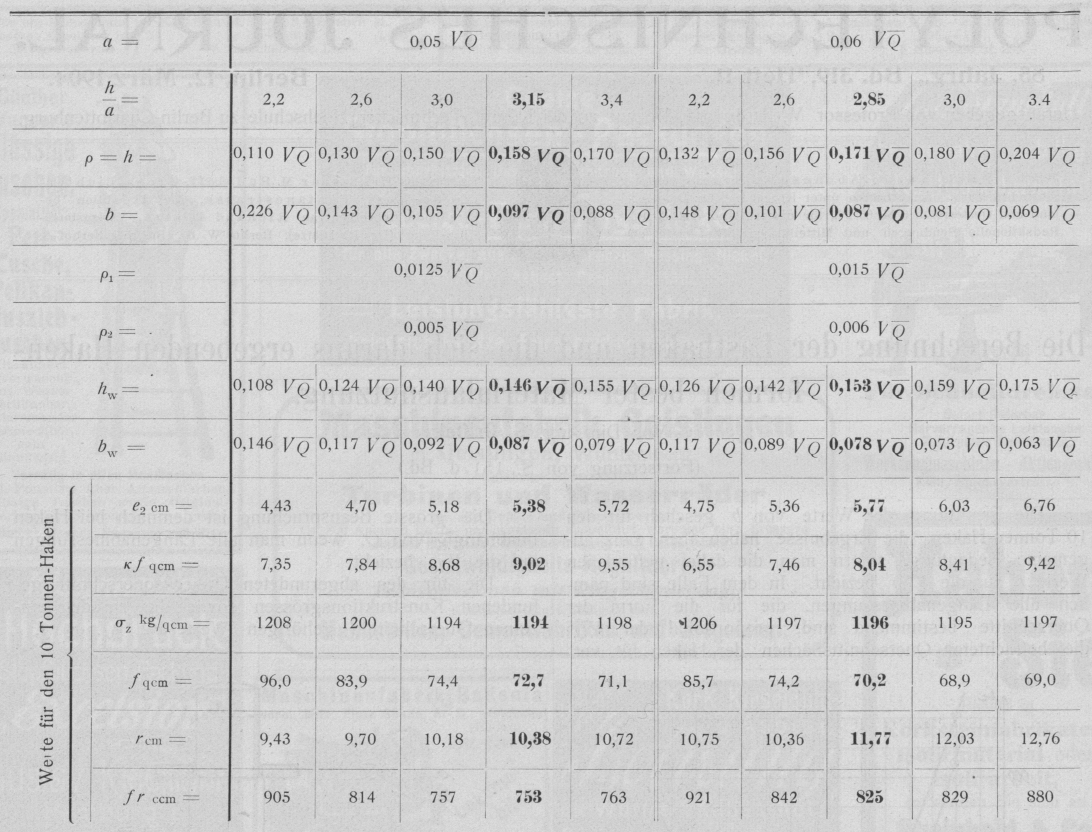 a = 0,05 √Q 0,06 √Q
h/a = 2,2 2,6 3,0 3,15 3,4 2,2 2,6 2,85 3,0 3.4
ρ = h = 0,110 √Q 0,130 √Q 0,150 √Q 0,158 √Q 0,170 √Q 0,132 √Q 0,156 √Q 0,171 √Q 0,180 √Q 0,204 √Q
b = 0,226 √Q 0,143 √Q 0,105 √Q 0,097 √Q 0,088 √Q 0,148 √Q 0,101 √Q 0,087 √Q 0,081 √Q 0,069 √Q
ρ₁ = 0,0125 √Q 0,015 √Q
ρ₂ = 0,005 √Q 0,006 √Q
h_w = 0,108 √Q 0,124 √Q 0,140 √Q 0,146 √Q 0,155 √Q 0,126 √Q 0,142 √Q 0,153 √Q 0,159 √Q 0,175 √Q
b_w = 0,146 √Q 0,117 √Q 0,092 √Q 0,087 √Q 0,079 √Q 0,117 √Q 0,089 √Q 0,078 √Q 0,073 √Q 0,063 √Q
Werte für den 10 Tonnen-Haken
e₂ cm = 4,43 4,70 5,18 5,38 5,72 4,75 5,36 5,77 6,03 6,76
κf qcm = 7,35 7,84 8,68 9,02 9,55 6,55 7,46 8,04 8,41 9,42
σ_z kg/qcm = 1208 1200 1194 1194 1198 1206 1197 1196 1195 1197
f qcm = 96,0 83,9 74,4 72,7 71,1 85,7 74,2 70,2 68,9 69,0
r cm = 9,43 9,70 10,18 10,38 10,72 10,75 10,36 11,77 12,03 12,76
fr ccm = 905 814 757 753 763 921 842 825 829 880